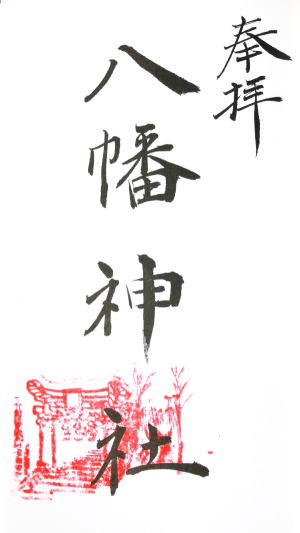 奉拝
八幡神社